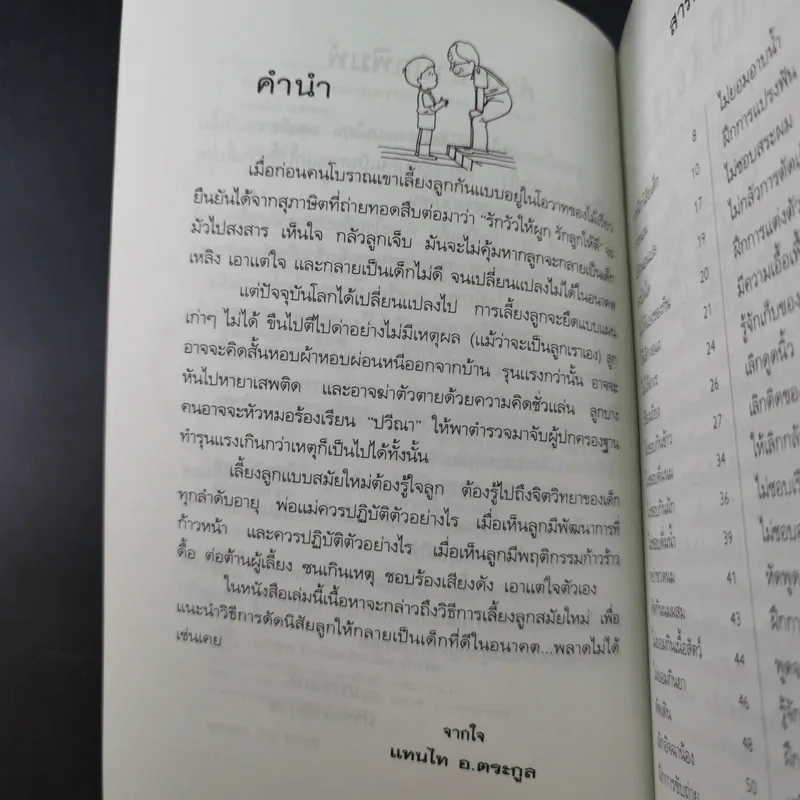 คำนำ
เมื่อก่อนคนโบราณเขาเลี้ยงลูกกันแบบอยู่ในโอวาทของไม้เรียว
ยืนยันได้จากสุภาษิตที่ถ่ายทอดสืบต่อมาว่า "รักวัวให้ผูก รักลูกให้ตี" จะ
มัวไปสงสาร เห็นใจ กลัวลูกเจ็บ มันจะไม่คุ้มหากลูกจะกลายเป็นเด็ก
เหลิง เอาแต่ใจ และกลายเป็นเด็กไม่ดี จนเปลี่ยนแปลงไม่ได้ในอนาคต
แต่ปัจจุบันโลกได้เปลี่ยนแปลงไป การเลี้ยงลูกจะยึดแบบแผน
เก่าๆ ไม่ได้ ขืนไปตีไปด่าอย่างไม่มีเหตุผล (แม้ว่าจะเป็นลูกเราเอง) ลูก
อาจจะคิดสั้นหอบผ้าหอบผ่อนหนีออกจากบ้าน รุนแรงกว่านั้น อาจจะ
หันไปหายาเสพติด และอาจฆ่าตัวตายด้วยความคิดชั่วแล่น ลูกบาง
คนอาจจะหัวหมอร้องเรียน "ปวีณา" ให้พาตำรวจมาจับผู้ปกครองฐาน
ทำรุนแรงเกินกว่าเหตุก็เป็นไปได้ทั้งนั้น
เลี้ยงลูกแบบสมัยใหม่ต้องรู้ใจลูก ต้องรู้ไปถึงจิตวิทยาของเด็ก
ทุกลำดับอายุ พ่อแม่ควรปฏิบัติตัวอย่างไร เมื่อเห็นลูกมีพัฒนาการที่
ก้าวหน้า และควรปฏิบัติตัวอย่างไร เมื่อเห็นลูกมีพฤติกรรมก้าวร้าว
ดื้อ ต่อต้านผู้เลี้ยง ซนเกินเหตุ ชอบร้องเสียงดัง เอาแต่ใจตัวเอง
ในหนังสือเล่มนี้เนื้อหาจะกล่าวถึงวิธีการเลี้ยงลูกสมัยใหม่ เพื่อ
แนะนำวิธีการดัดนิสัยลูกให้กลายเป็นเด็กที่ดีในอนาคต...พลาดไม่ได้
เช่นเคย
จากใจ
แทนไท อ.ตระกูล
8
10
17
19
20
21
24
26
27
34
36
39
41
43
44
46
48
50
ไม่ยอมอาบน้ำ
ฝึกการแปรงฟัน
ไม่ชอบสระผม
ไม่กลัวการตัด
ฝึกการแต่งตัว
มีความเอื้อเฟื้
รู้จักเก็บของ
เลิกดูดนิ้ว
เลิกติดขอ
ให้เลิกกลั
ไม่ชอบเรี
ไม่ชอบ
หัดพูด
ฝึกกา
พูดจ
รู้จั
ฝึก